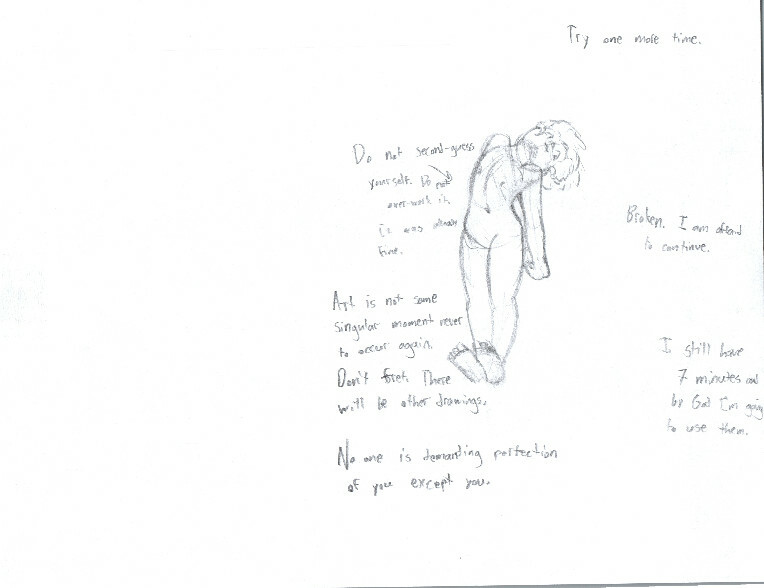 Try one more time.
Do not second-guess
yourself. Do not
over-work it.
it was already
fine.
Broken. I am afraid
to continue.
Art is not some
singular moment never
to occur again.
Don't fret. There
will be other drawings.
I still have
7 minutes and
by God I'm going
to use them.
No one is demanding perfection
of you except you.